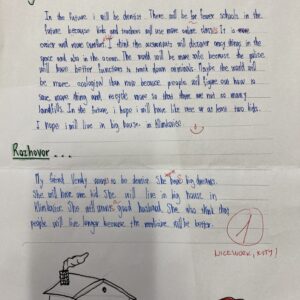 In the future i will be dentist. There will be far fewer schools in the
future because kids and teachers will use more online It is more
easier and more comfort. I think the scientists will discover many things in the
space and also in the ocean. The world will be more safe because the police
will have better functions to track down criminals. Maybe the world will
be more ecological than now because people will figure out how to
save more thing and recycle more so that there are not so many
landfills. In the future i hope i will have like one or at least two kids.
I hope i will live in big house in Klimkovice.
Rozhovor...
My friend wants to be dentist. She have big dreams.
She will have one kid. She will live in big house in
Klimkovice. She will good husband. She also think that
people will live longer because the medicine will be better.
1
NICE WORK, KITY!